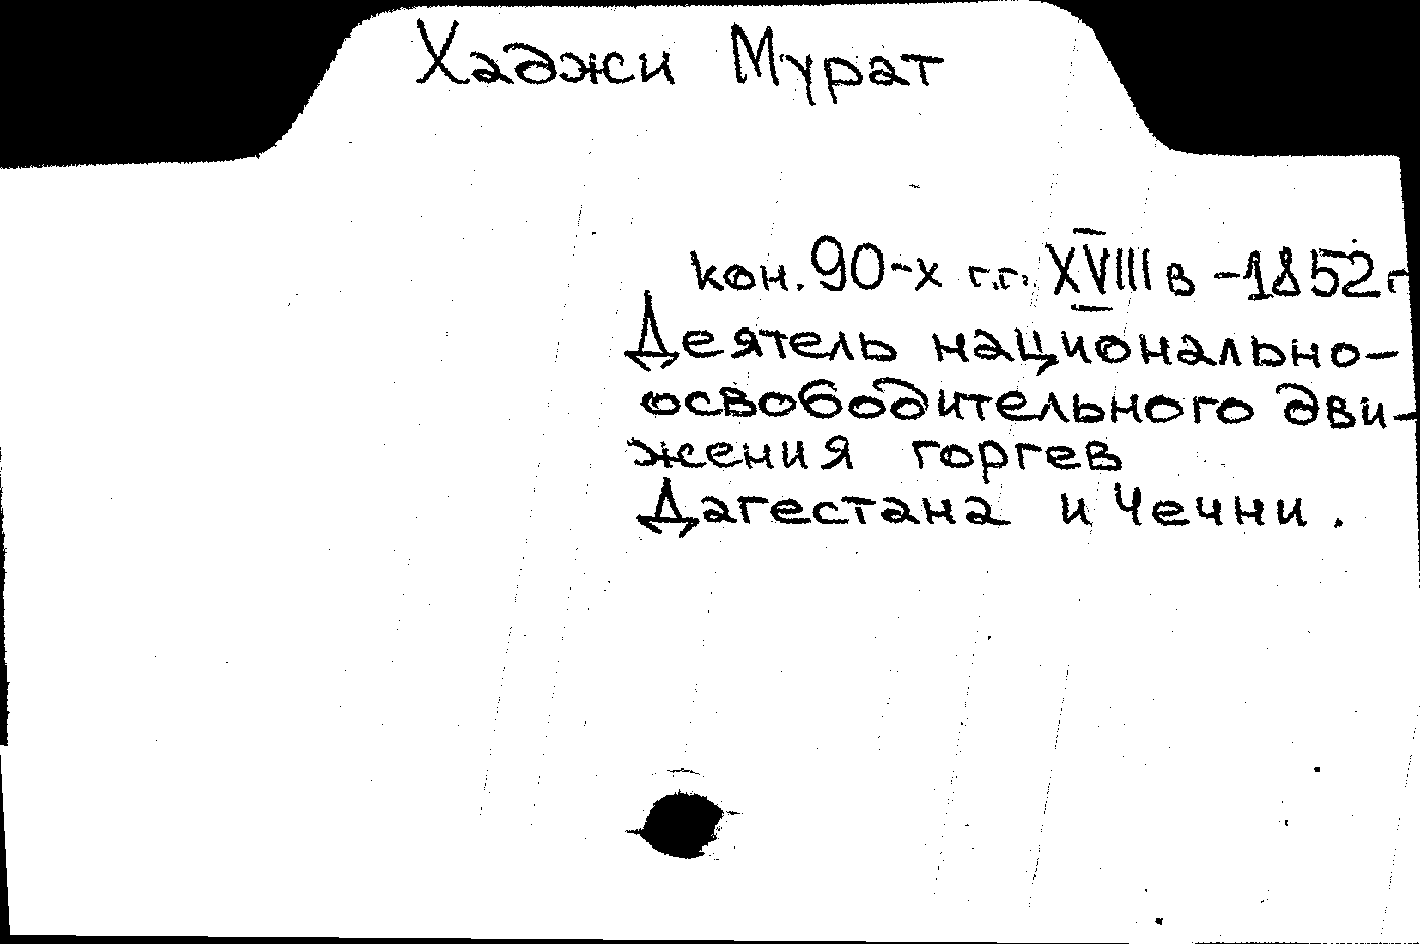 Хаджи Мурат
кон. 90-х г.г. XVIII в -1852 г
Деятель национально-
освободительного дви-
жения горгев
Дагестана и Чечни.